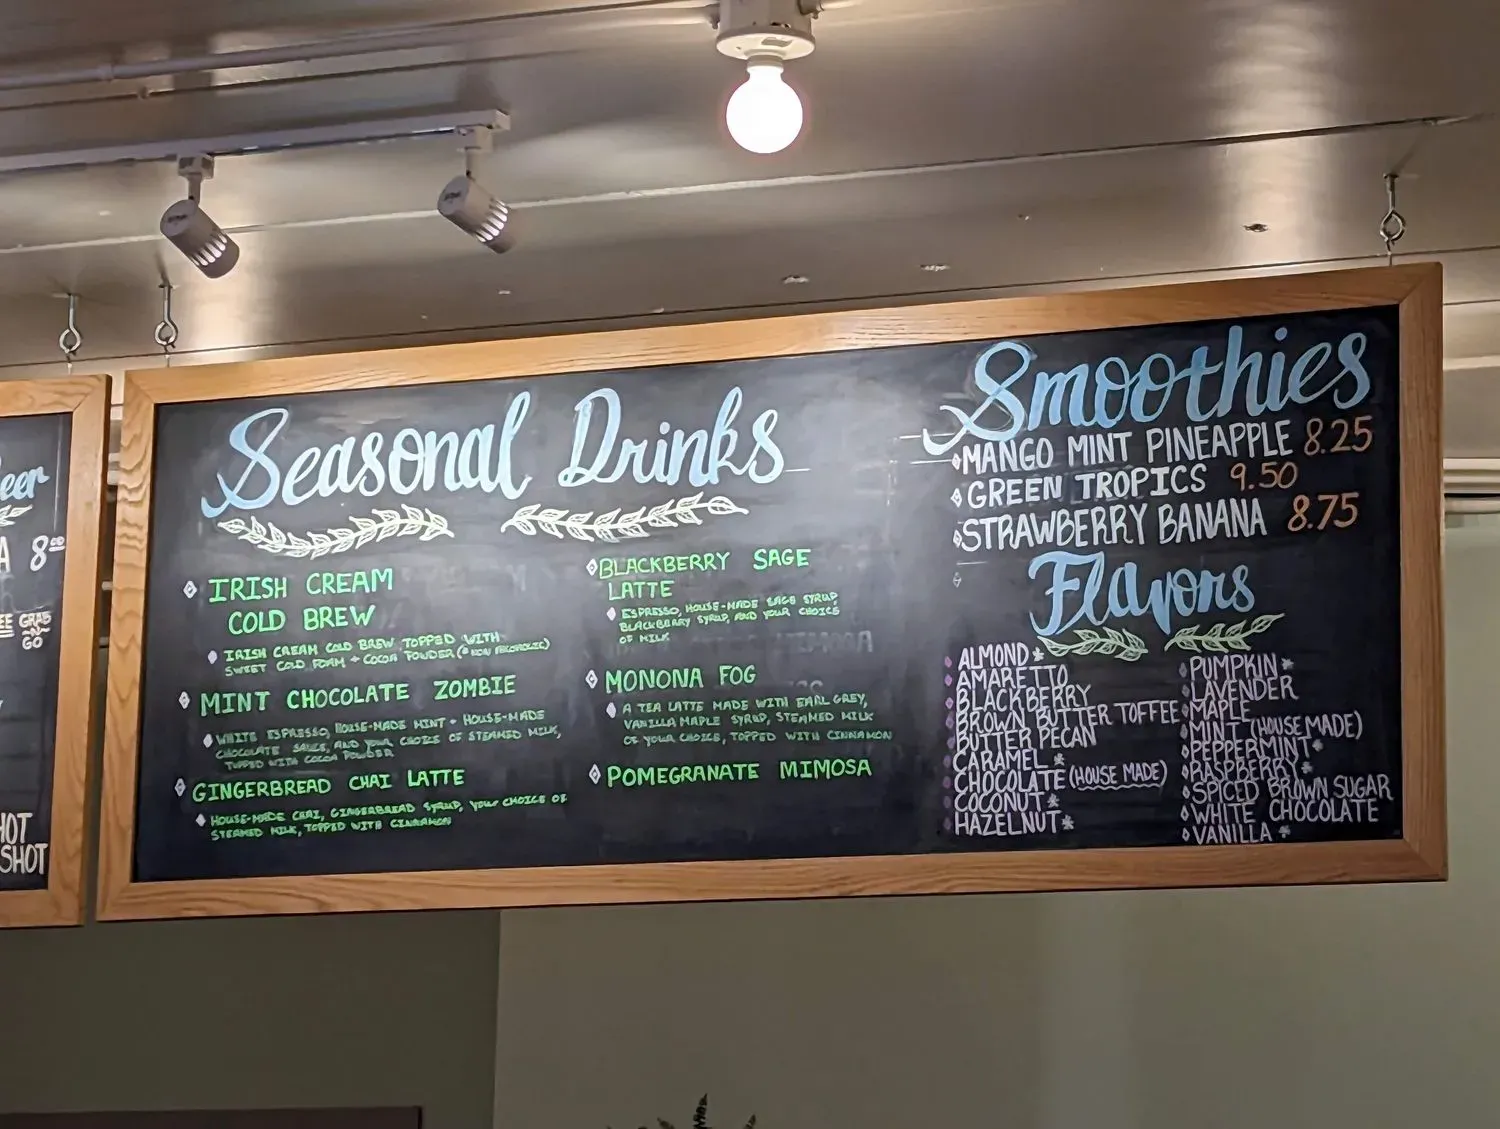 eer
A 8.00
EE GRAB
N
GO
HOT
SHOT
Seasonal Drinks
IRISH CREAM
COLD BREW
IRISH CREAM COLD BREW TOPPED WITH
SWEET COLD FOAM + COCOA POWDER (*NON ALCOHOLIC)
MINT CHOCOLATE ZOMBIE
WHITE ESPRESSO, HOUSE-MADE MINT + HOUSE-MADE
CHOCOLATE SAUCE, AND YOUR CHOICE OF STEAMED MILK,
TOPPED WITH COCOA POWDER
GINGERBREAD CHAI LATTE
HOUSE-MADE CHAI, GINGERBREAD SYRUP, YOUR CHOICE OF
STEAMED MILK, TOPPED WITH CINNAMON
BLACKBERRY SAGE
LATTE
ESPRESSO, HOUSE-MADE SAGE SYRUP,
BLACKBERRY SYRUP, AND YOUR CHOICE
OF MILK
MONONA FOG
A TEA LATTE MADE WITH EARL GREY,
VANILLA MAPLE SYRUP, STEAMED MILK
OF YOUR CHOICE, TOPPED WITH CINNAMON
POMEGRANATE MIMOSA
Smoothies
MANGO MINT PINEAPPLE 8.25
GREEN TROPICS 9.50
STRAWBERRY BANANA 8.75
Flavors
ALMOND *
AMARETTO
BLACKBERRY
BROWN BUTTER TOFFEE
BUTTER PECAN
CARAMEL *
CHOCOLATE (HOUSE MADE)
COCONUT *
HAZELNUT *
PUMPKIN *
LAVENDER
MAPLE
MINT (HOUSE MADE)
PEPPERMINT *
RASPBERRY *
SPICED BROWN SUGAR
WHITE CHOCOLATE
VANILLA *